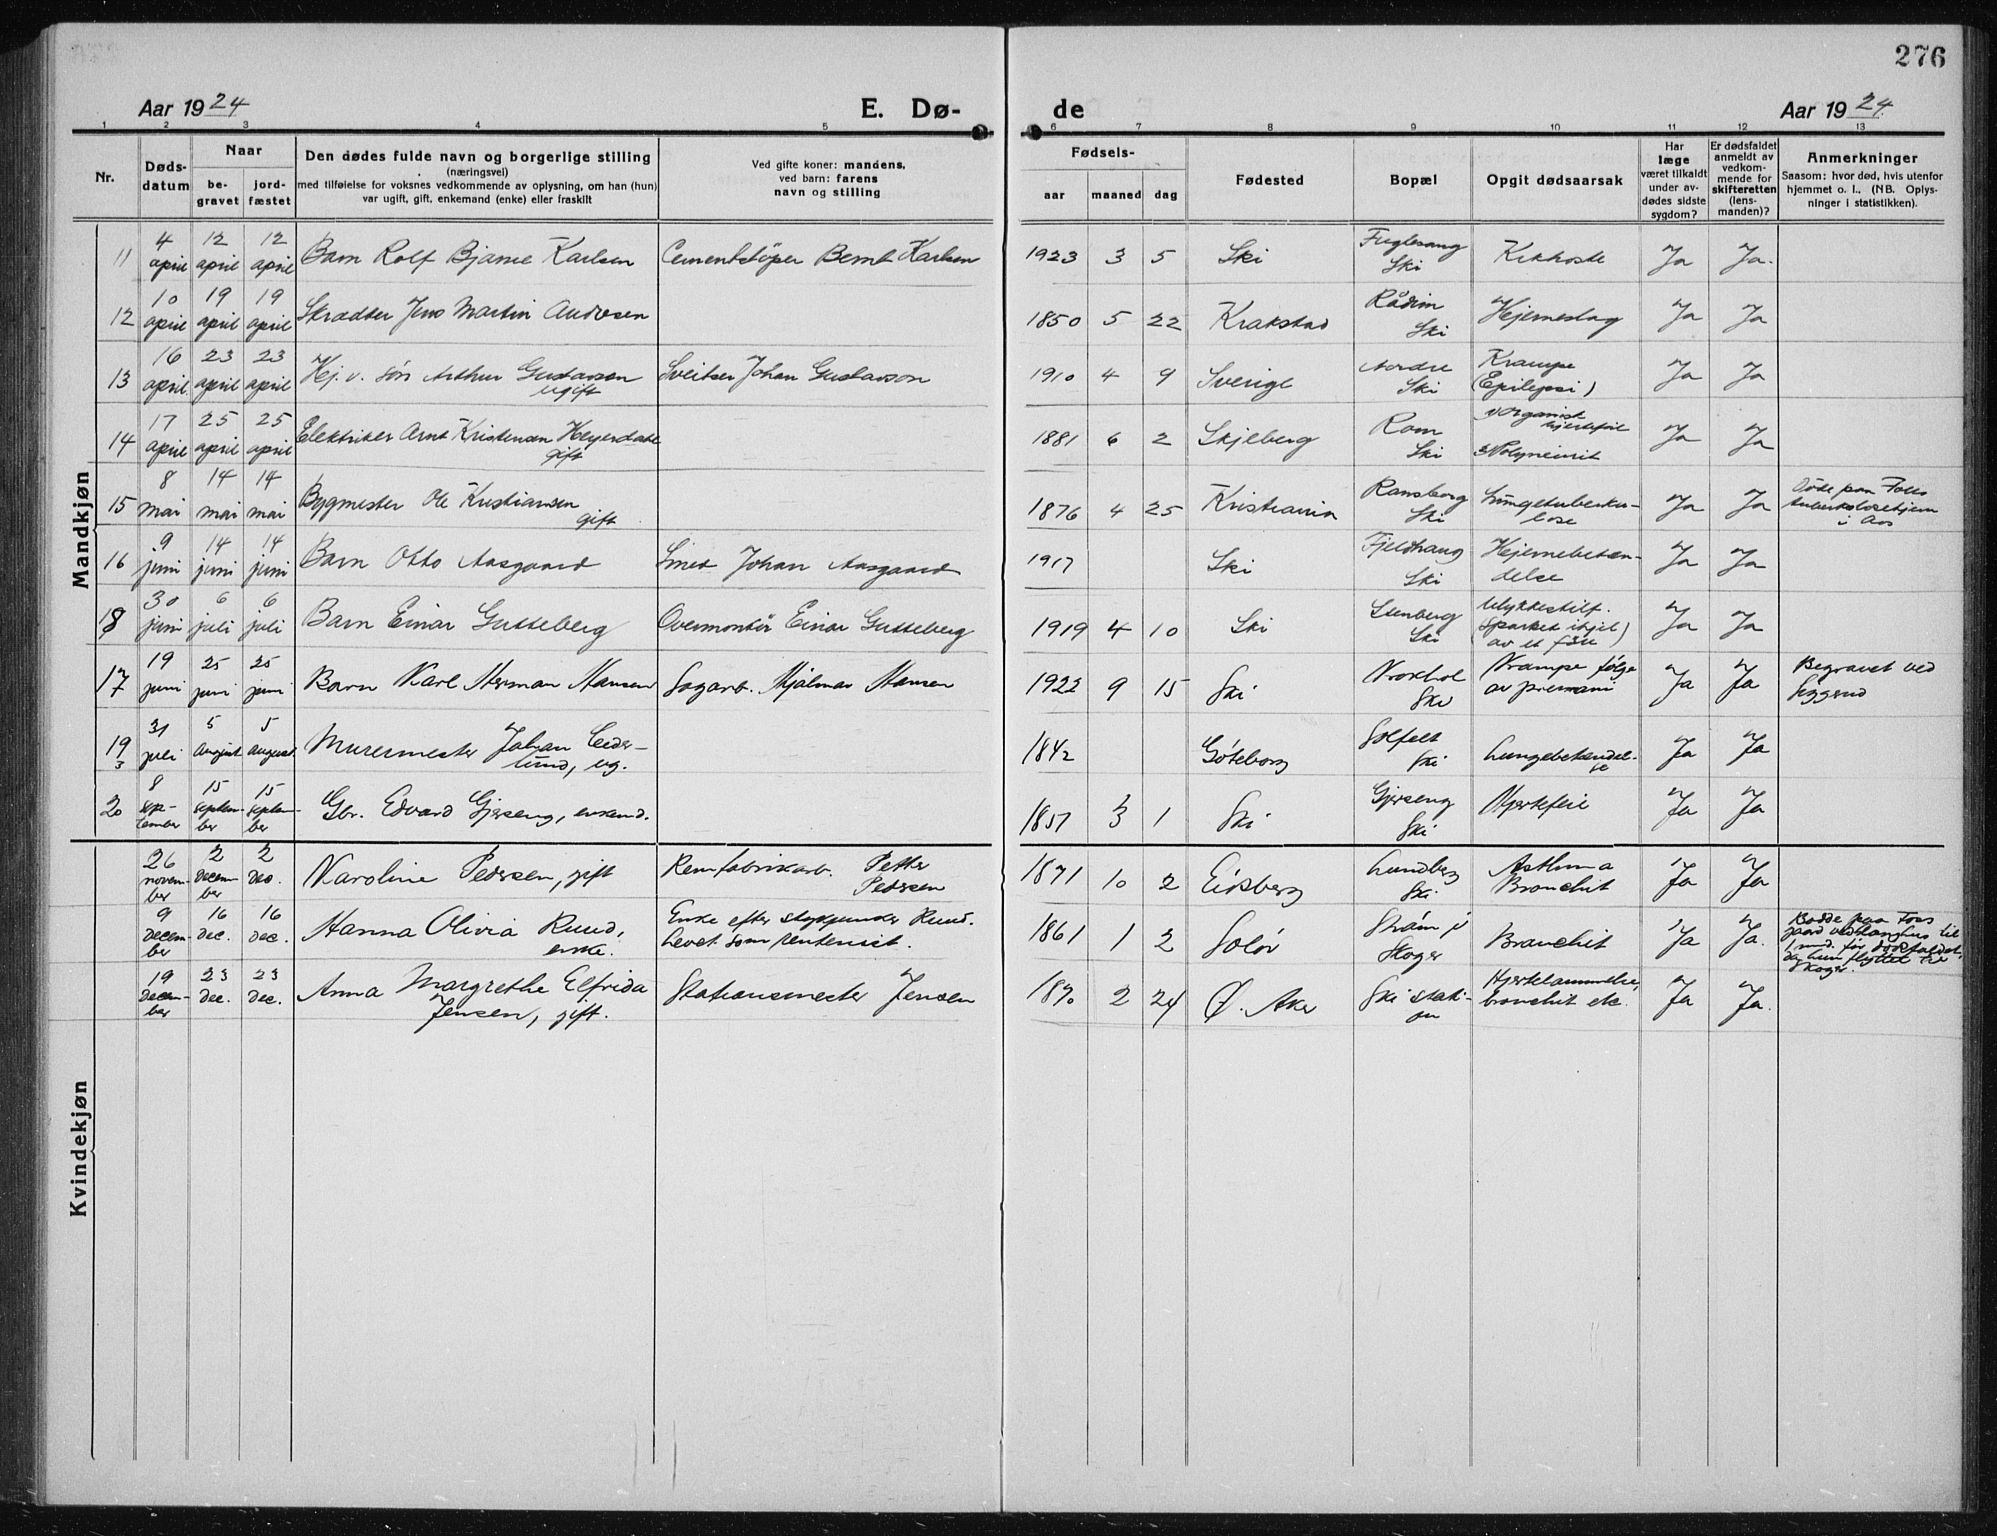 276
Aar 1924 E. Dø- de Aar 1924
1 2 3 4 5 6 7 8 9 10 11 12 13
Nr. Døds-datum Naar be-gravet jord-fæstet
Den dødes fulde navn og borgerlige stilling
(næringsvei)
med tilføielse for voksnes vedkommende av oplysning, om han (hun)
var ugift, gift, enkemand (enke) eller fraskilt
Ved gifte koner: mandens,
ved barn: farens
navn og stilling
Fødsels- aar maaned dag
Fødested
Bopæl
Opgit dødsaarsak
Har læge været tilkaldt under av-dødes sidste sygdom?
Er dødsfaldet anmeldt av vedkom-mende for skifteretten (lens-manden)?
Anmerkninger
Saasom: hvor død, hvis utenfor
hjemmet o. l., (NB. Oplys-
ninger i statistikken).
Mandkjøn
11 4 april 12 april 12 april Barn Rolf Bjarne Karlsen Cementstøper Bernt Karlsen 1923 3 5 Ski Fuglesang Ski Kikhoste Ja Ja.
12 10 april 19 april 19 april Skrædder Jens Martin Andersen 1850 5 22 Krakstad Ski Hjerneslag Ja Ja
13 16 april 23 april 23 april Hj. v. søn Arthur Gustavsen ugift Sveitser Johan Gustavson 1910 4 9 Sverige Nordre Ski Krampe (Epilepsi) Ja Ja
14 17 april 25 april 25 april Elektriker Arnt Kristensen Heyerdahl gift 1881 6 2 Skjeberg Rom Ski 1) Organisk hjertefeil 2) Polyneurit Ja Ja
15 8 mai 14 mai 14 mai Bygmester Ole Kristiansen gift 1876 4 25 Kristiania Ransborg Ski Lungetuberkulose Ja Ja Døde paa Follo tuberkulosehjem i Aas
16 9 juni 14 juni 14 juni Barn Otto Aasgaard Smed Johan Aasgaard 1917 Ski Fjeldhaug Ski Hjernebetæn-delse Ja Ja
18 30 juni 6 juli 6 juli Barn Einar Gutteberg Overmontør Einar Gutteberg 1919 4 10 Ski Stenberg Ski Ulykkestilf. (Sparket ihjel av et føre) Ja Ja
17 19 juni 25 juni 25 juni Barn Karl Herman Hansen Sagarb. Hjalmar Hansen 1922 9 15 Ski Ski Krampe følge av Ja Ja Begravet ved
19 31 juli 5 august 5 august Murermester Johan Ceder-lund, ug. 1842 Göteborg Solfelt Ski Lungebetændel-se Ja Ja
20 8 sep-tember 15 septem-ber 15 septem-ber Gbr. Edvard Gjerseng, enkemd. 1857 3 1 Ski Gjerseng Ski Hjertefeil Ja Ja
Kvindekjøn
26 novem-ber 2 decem-ber 2 dec. Karoline Pedersen, gift Remfabrikarb. Petter Pedersen 1871 10 2 Eidsberg Lundberg Ski Asthma Bronchit Ja Ja
9 decem-ber 16 dec. 16 dec. Hanna Olivia Ruud, enke. Enke efter stykjunker Ruud. Levet som rentenist. 1861 1 2 Solør Strøm i Skoger Bronchit Ja Ja. Bodde paa Foss gaard ved Langhus til 1 md. før dødsfaldet, da hun flyttet til Skoger.
19 decem-ber 23 dec. 23 dec. Anna Margrethe Elfrida Jensen, gift. Stationsmester Jensen 1870 2 24 Ø. Aker Ski stati-on Hjertelammelse, bronchit etc. Ja Ja.